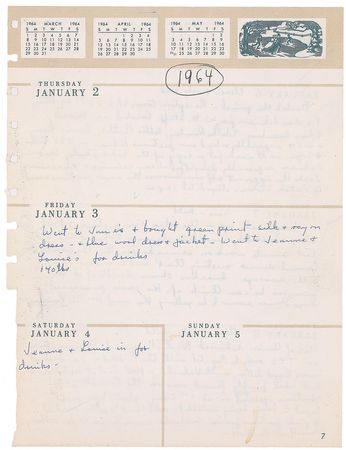 1964 MARCH 1964
S M T W T F S
1 2 3 4 5 6 7
8 9 10 11 12 13 14
15 16 17 18 19 20 21
22 23 24 25 26 27 28
29 30 31
1964 APRIL 1964
S M T W T F S
1 2 3 4
5 6 7 8 9 10 11
12 13 14 15 16 17 18
19 20 21 22 23 24 25
26 27 28 29 30
1964 MAY 1964
S M T W T F S
1 2
3 4 5 6 7 8 9
10 11 12 13 14 15 16
17 18 19 20 21 22 23
24/31 25 26 27 28 29 30
1964
THURSDAY
JANUARY 2
FRIDAY
JANUARY 3
Went to + bought green print silk + rayon
dress - + blue wool dress + jacket - Went to Jeanne +
Louise's for drinks
SATURDAY
JANUARY 4
Jeanne + Louise in for
drinks -
SUNDAY
JANUARY 5
7